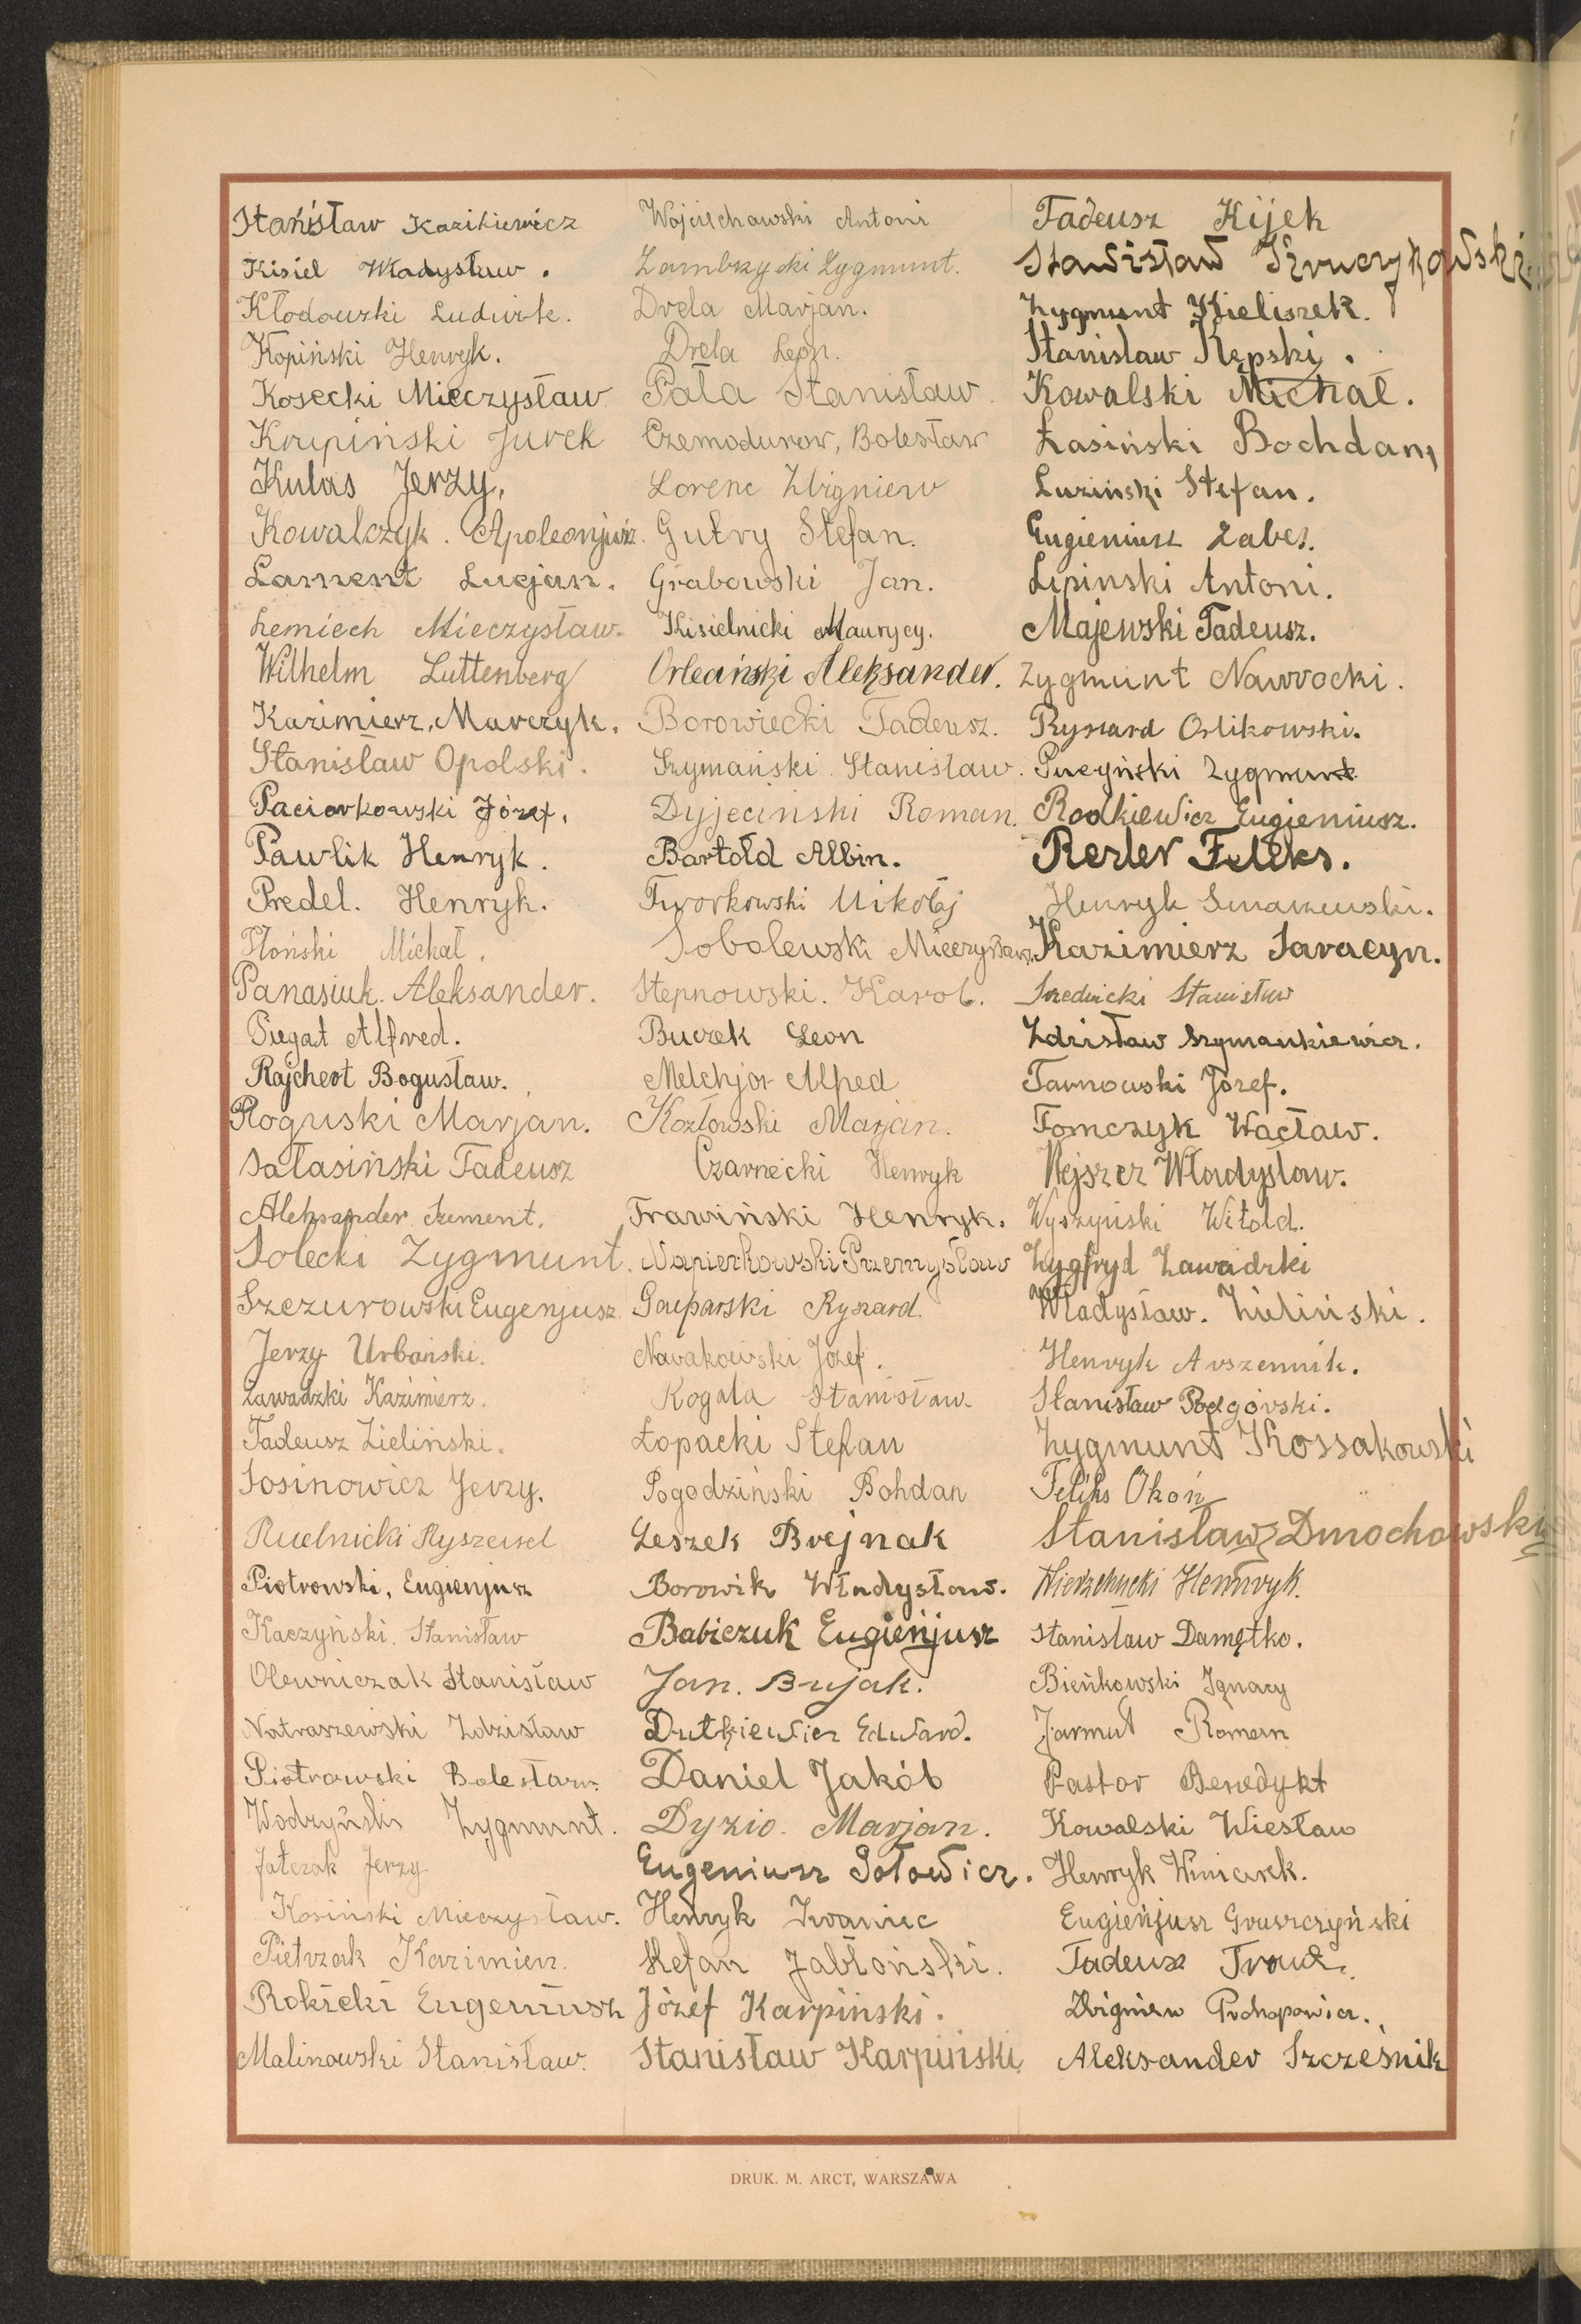 Stanisław Kazikiewicz
Kisiel Władysław.
Kłodowski Ludwik.
Kopiński Henryk.
Kosecki Mieczysław
Krupiński Jurek
Kulas Jerzy,
Kowalczyk. Apoleonjusz.
Lament Lucjan.
Lemiech Mieczysław.
Wilhelm Luttenberg
Kazimierz, Marczyk.
Stanisław Opolski.
Paciorkowski Józef,
Pawlik Henryk.
Predel. Henryk.
Płoński Michał.
Panasiuk. Aleksander.
Piegat Alfred.
Rajchert Bogusław.
Roguski Marjan.
Sałasiński Tadeusz
Aleksander Szment.
Solecki Zygmunt.
Szczurowski Eugenjusz.
Jerzy Urbański.
Zawadzki Kazimierz.
Tadeusz Zieliński.
Sosinowicz Jerzy.
Rudnicki Ryszard
Piotrowski, Eugienjusz
Kaczyński. Stanisław
Olewniczak Stanisław
Natraszewski Zdzisław
Piotrowski Bolesław.
Wodzyński Zygmunt.
Jatczak Jerzy
Kosiński Mieczysław.
Pietrzak Kazimierz.
Rokicki Eugeniusz
Malinowski Stanisław.
Wojciechowski Antoni
Zambrzycki Zygmunt.
Drela Marjan.
Drela Leon.
Pała Stanisław.
Czemodurow, Bolesław
Lorenc Zbigniew
Gutry Stefan.
Grabowski Jan.
Kisielnicki Maurycy.
Orleański Aleksander.
Borowiecki Tadeusz.
Szymański. Stanisław.
Dyjeciński Roman.
Bartołd Albin.
Tworkowski Mikołaj
Sobolewski Mieczysław.
Stepnowski. Karol.
Buczek Leon
Melchjor Alfred
Kozłowski Marjan.
Czarnecki Henryk
Trawiński Henryk.
Napierkowski Przemysław
Gasparski Ryszard.
Nowakowski Józef.
Rogala Stanisław
Łopacki Stefan
Pogodziński Bohdan
Leszek Brejnak
Borowik Władysław.
Babiczuk Eugienjusz
Jan. Bujak.
Dutkiewicz Edward.
Daniel Jakób
Dyzio. Marjan.
Eugeniusz Gołowicz.
Henryk Iwaniec
Stefan Jabłoński.
Józef Karpiński.
Stanisław Karpiński
Tadeusz Kijek
Stanisław Kruczkowski
Zygmunt Kieliszek.
Stanisław Kępski.
Kowalski Michał.
Łasiński Bochdan,
Luziński Stefan.
Eugieniusz Łabes.
Lipinski Antoni.
Majewski Tadeusz.
Zygmunt Nawrocki.
Ryszard Orlikowski.
Puczyński Zygmunt
Rodkiewicz Eugieniusz.
Rezler Feliks.
Henryk Smarzewski.
Kazimierz Saracyn.
Srzednicki Stanisław
Zdzisław Szymankiewicz.
Tarnowski Józef.
Tomczyk Wacław.
Wejszcz Władysław.
Wyszyński Witold.
Zygfryd Zawadzki
Władysław. Zieliński.
Henryk Arszennik.
Stanisław Podgórski.
Zygmunt Kossakowski
Feliks Okoń
Stanisław Dmochowski
Wierzchucki Henryk.
Stanisław Damętko.
Bieńkowski Ignacy
Jarmuł Roman
Pastor Benedykt
Kowalski Wiesław
Henryk Winiarek.
Eugieńjusz Gruszczyński
Tadeusz
Zbigniew Prchopowicz.
Aleksander Szcześnik
DRUK. M. ARCT, WARSZAWA